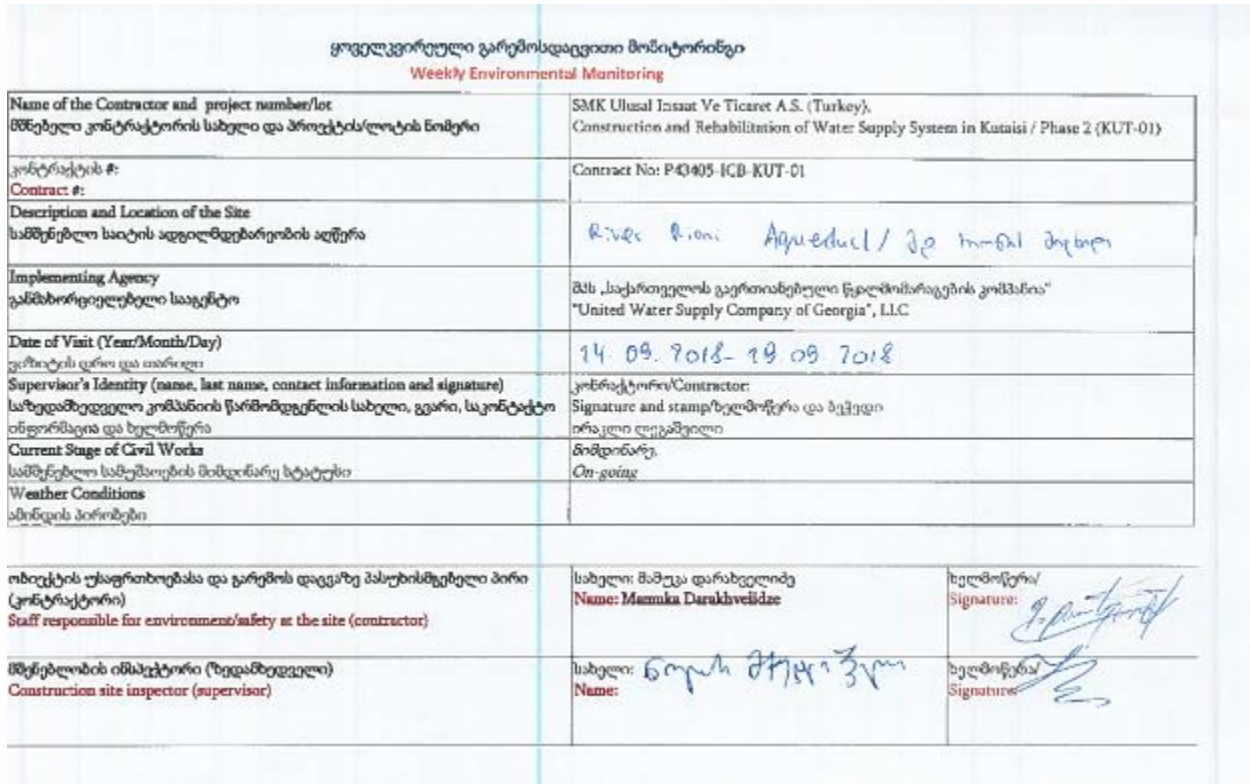 ყოველკვირეული გარემოსდაცვითი მონიტორინგი
Weekly Environmental Monitoring
Name of the Contractor and project number/lot
მშნებელი კონტრაქტორის სახელი და პროექტის/ლოტის ნომერი
SMK Ulusal Insaat Ve Ticaret A.S. (Turkey),
Construction and Rehabilitation of Water Supply System in Kutaisi / Phase 2 (KUT-01)
კონტრაქტის #:
Contract #:
Contract No: P43405-ICB-KUT-01
Description and Location of the Site
სამშენებლო საიტის ადგილმდებარეობის აღწერა
River Rioni Aqueduct /
Implementing Agency
განმახორციელებელი სააგენტო
შპს „საქართველოს გაერთიანებული წყალმომარაგების კომპანია"
"United Water Supply Company of Georgia", LLC
Date of Visit (Year/Month/Day)
ვიზიტის დრო და თარიღი
14. 09. 2018- 19. 09. 2018
Supervisor's Identity (name, last name, contact information and signature)
საზედამხედველო კომპანიის წარმომდგენლის სახელი, გვარი, საკონტაქტო
ინფორმაცია და ხელმოწერა
კონრაქტორი/Contractor:
Signature and stamp/ხელმოწერა და ბეჭედი
ირაკლი ლეგაშვილი
Current Stage of Civil Works
სამშენებლო სამუშაოების მიმდინარე სტატუსი
მიმდინარე,
On-going
Weather Conditions
ამინდის პირობები
ობიექტის უსაფრთხოებასა და გარემოს დაცვაზე პასუხისმგებელი პირი
(კონტრაქტორი)
Staff responsible for environment/safety at the site (contractor)
სახელი: მამუკა დარახველიძე
Name: Mamuka Darakhvelidze
ხელმოწერა/
Signature:
მშენებლობის ინსპექტორი (ზედამხედველი)
Construction site inspector (supervisor)
სახელი:
Name:
ხელმოწერა/
Signature